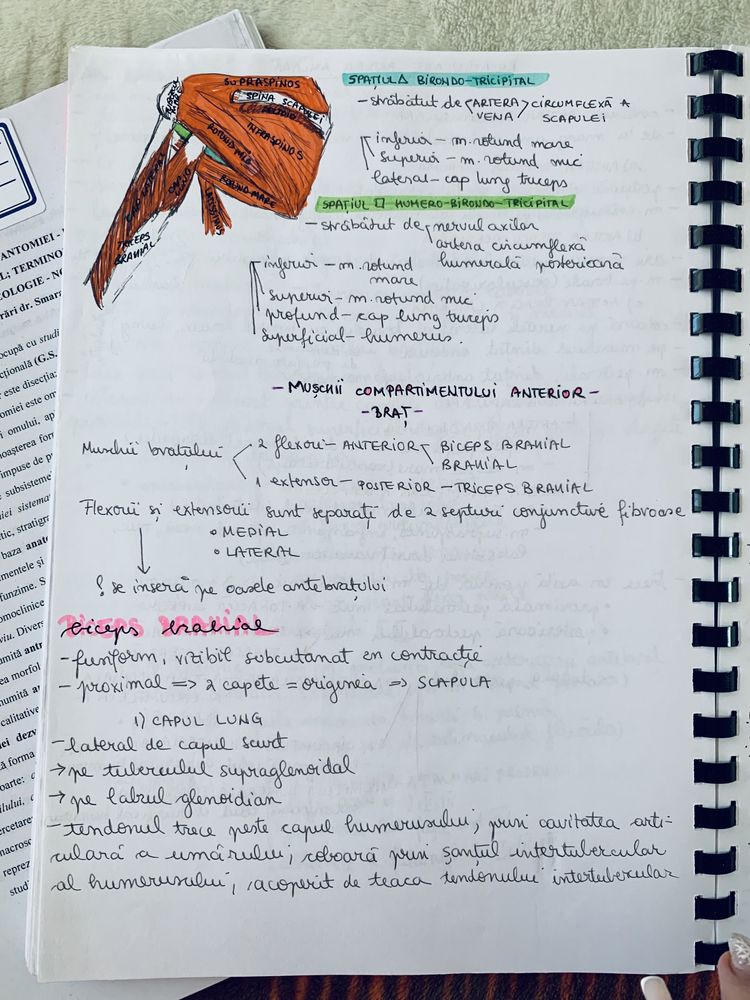 SUPRASPINOS
SPINA SCAPULEI
INFRASPINOS
ROTUND MIC
ROTUND MARE
TRICEPS
BRAHIAL
SPAȚIUL Δ BIRONDO-TRICIPITAL
- străbătut de ARTERA CIRCUMFLEXĂ A
VENA SCAPULEI
inferior - m. rotund mare
superior - m. rotund mic
lateral - cap lung triceps
SPAȚIUL □ HUMERO-BIRONDO-TRICIPITAL
- străbătut de nervul axilar
artera circumflexă
humerală posterioară
inferior - m. rotund
mare
superior - m. rotund mic
profund - cap lung triceps
superficial - humerus.
- MUȘCHII COMPARTIMENTULUI ANTERIOR -
- BRAȚ -
Mușchii brațului 2 flexori - ANTERIOR BICEPS BRAHIAL
BRAHIAL
1 extensor - POSTERIOR - TRICEPS BRAHIAL
Flexorii și extensorii sunt separați de 2 septuri conjunctive fibroase
• MEDIAL
• LATERAL
! se inseră pe oasele antebrațului
biceps brahial
- fusiform, vizibil subcutanat în contracție
- proximal => 2 capete = originea => SCAPULA
1) CAPUL LUNG
- lateral de capul scurt
→ pe tuberculul supraglenoidal
→ pe labrul glenoidian
- tendonul trece peste capul humerusului, prin cavitatea arti-
culară a umărului, coboară prin șanțul intertubercular
al humerusului, acoperit de teaca tendonului intertubercular
ANTOMIEI -
L; TERMINO
OLOGIE - NO
rări dr. Smar
ocupă cu studi
cțională (G.S.
r este disecția:
omiei este om
i omului, api
noașterea for
impuse de p
subsisteme
iei sistema
tic, stratigra
baza anato
mentele și
funzime. S
omoclinice
viu. Divers
umită antr
ea morfol
numită a
calitative
iei dezv
ă forma
oarte:
ilului,
ercetare
macrosc
reprez
stud